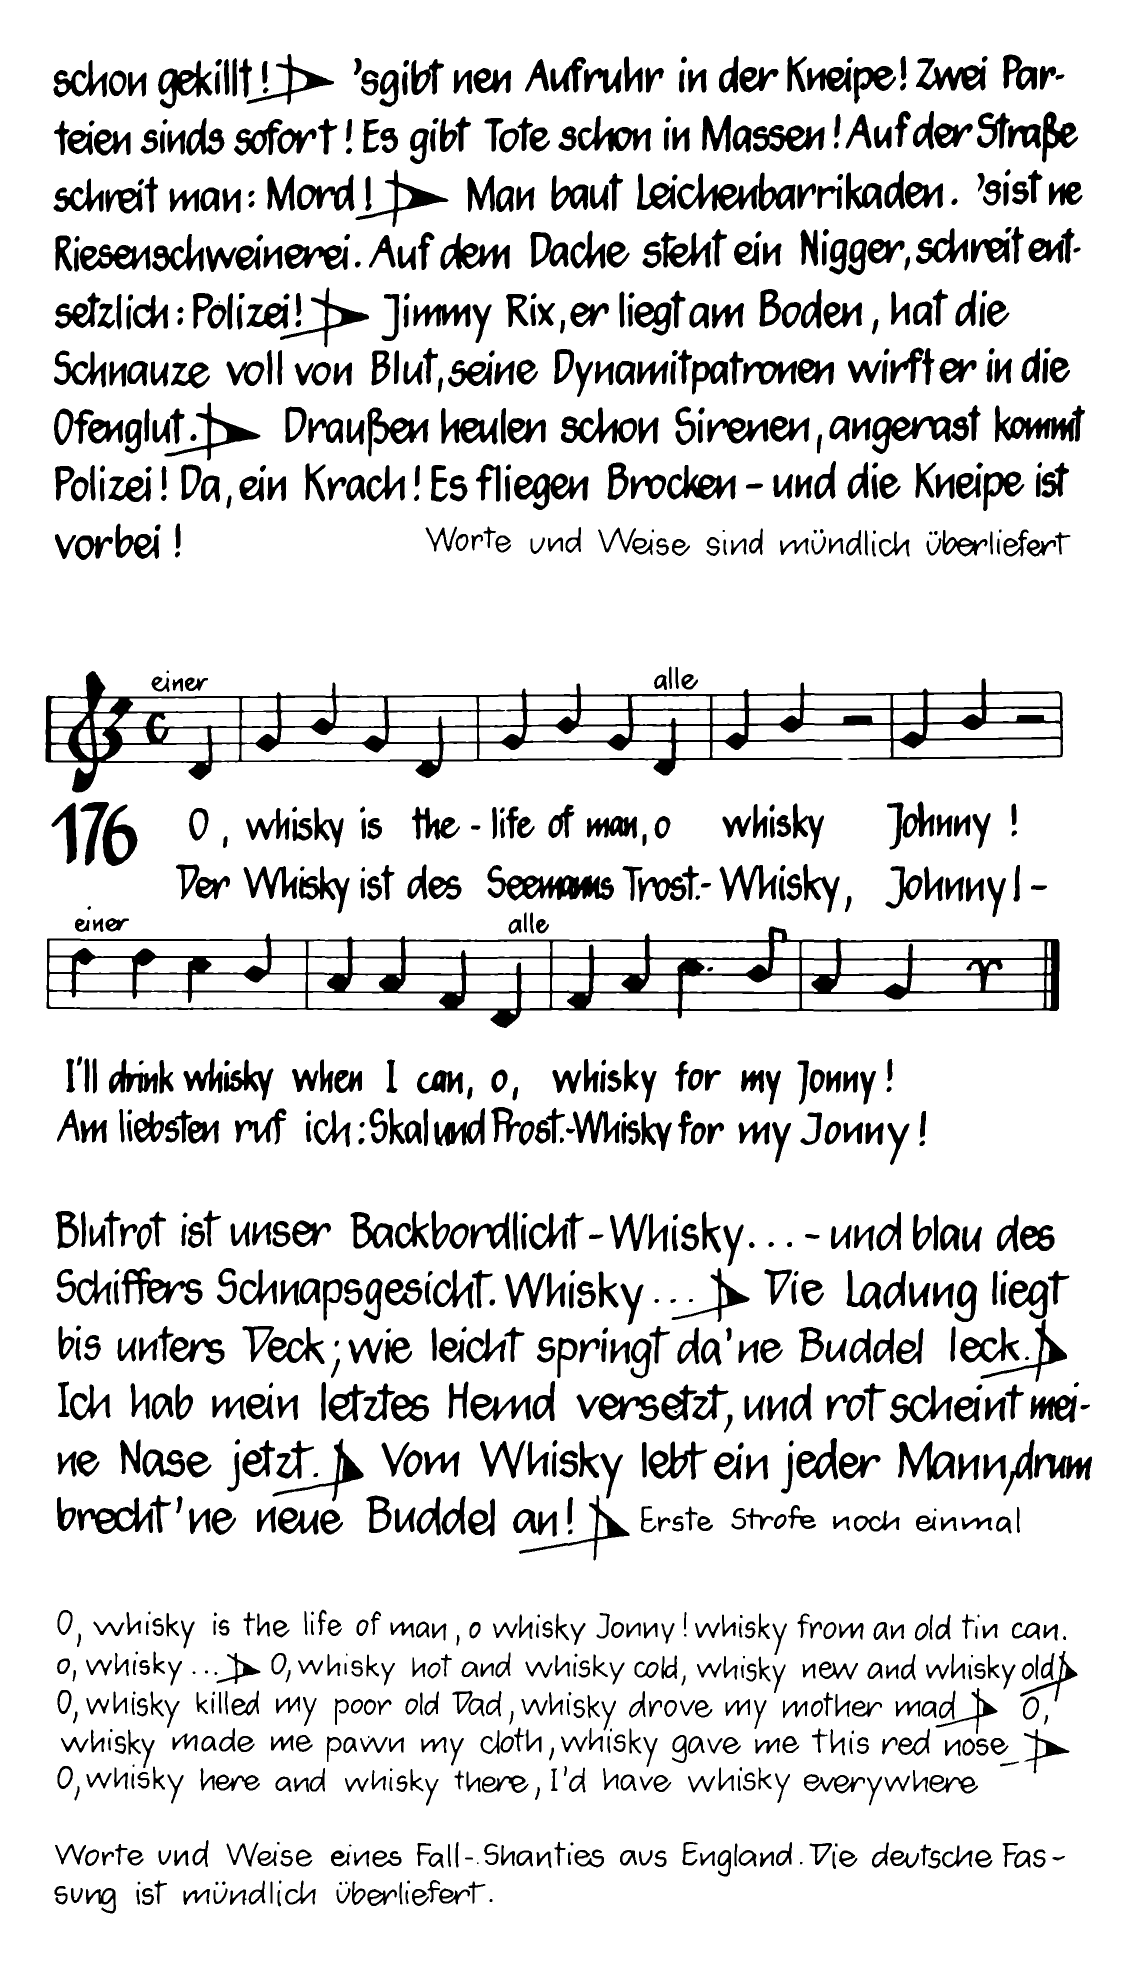 schon gekillt! 'sgibt nen Aufruhr in der Kneipe! Zwei Par-
teien sinds sofort! Es gibt Tote schon in Massen! Auf der Straße
schreit man: Mord! Man baut Leichenbarrikaden. 'sist ne
Riesenschweinerei. Auf dem Dache steht ein Nigger, schreit ent-
setzlich: Polizei! Jimmy Rix, er liegt am Boden, hat die
Schnauze voll von Blut, seine Dynamitpatronen wirft er in die
Ofenglut. Draußen heulen schon Sirenen, angerast kommt
Polizei! Da, ein Krach! Es fliegen Brocken - und die Kneipe ist
vorbei!
Worte und Weise sind mündlich überliefert
einer alle
176
O, whisky is the - life of man, o whisky Johnny!
Der Whisky ist des Seemanns Trost.- Whisky, Johnny! -
einer alle
I'll drink whisky when I can, o, whisky for my Jonny!
Am liebsten ruf ich: Skal und Prost.- Whisky for my Jonny!
Blutrot ist unser Backbordlicht - Whisky... - und blau des
Schiffers Schnapsgesicht. Whisky ... Die Ladung liegt
bis unters Deck; wie leicht springt da 'ne Buddel leck.
Ich hab mein letztes Hemd versetzt, und rot scheint mei-
ne Nase jetzt. Vom Whisky lebt ein jeder Mann, drum
brecht 'ne neue Buddel an! Erste Strofe noch einmal
O, whisky is the life of man, o whisky Jonny! whisky from an old tin can.
o, whisky ... O, whisky hot and whisky cold, whisky new and whisky old
O, whisky killed my poor old Dad, whisky drove my mother mad O,
whisky made me pawn my cloth, whisky gave me this red nose
O, whisky here and whisky there, I'd have whisky everywhere
Worte und Weise eines Fall-Shanties aus England. Die deutsche Fas-
sung ist mündlich überliefert.